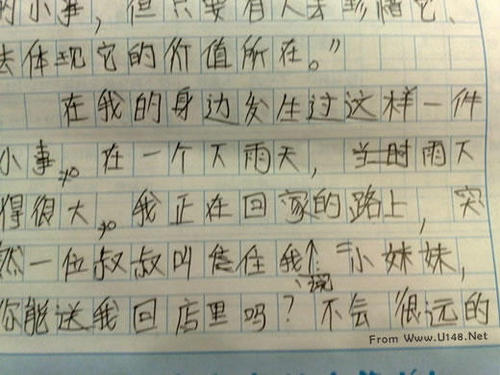 的小事,但只要有人去影悟它、
去体现它的价值所在。”
在我的身边发生过这样一件
小事。在一个下雨天,当时雨下
得很大。我正在回家的路上,突
然一位叔叔叫住我说:“小妹妹,
你能送我回店里吗?不会很远的
From Www.U148.Net